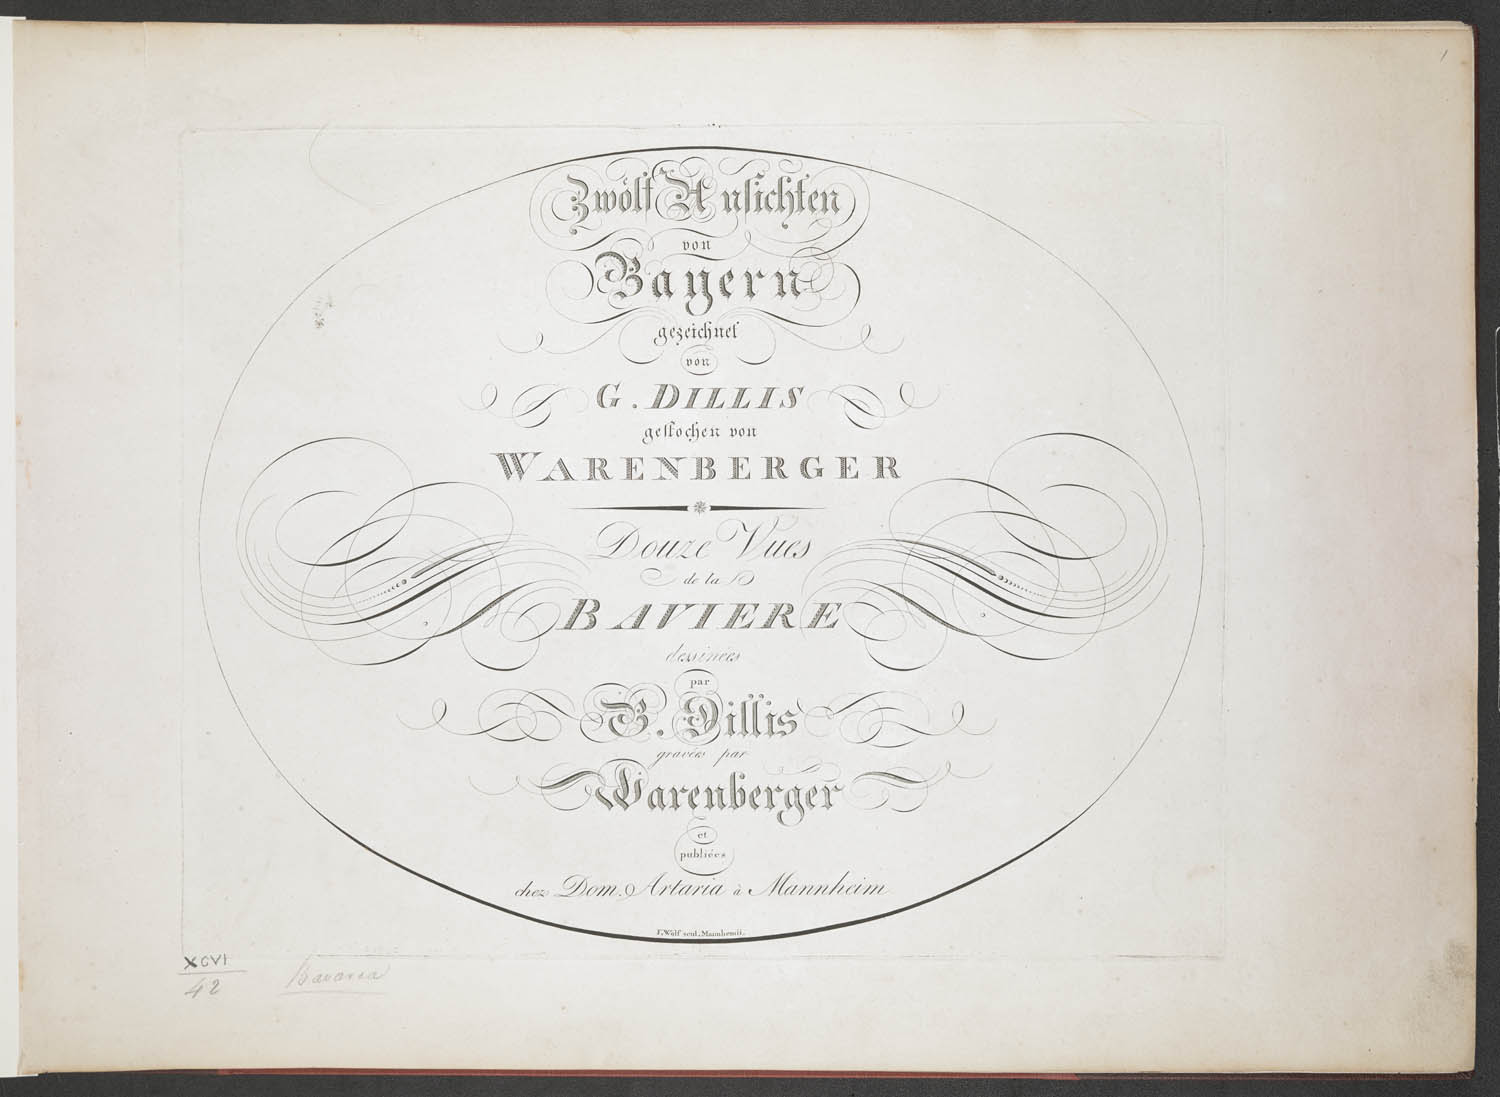 1
Zwölf Ansichten
von
Bayern
gezeichnet
von
G. DILLIS
gestochen von
WARENBERGER
Douze Vues
de la
BAVIERE
dessinées
par
G. Dillis
gravées par
Warenberger
et
publiées
chez Dom. Artaria à Mannheim
F. Wolf scul. Mannhemii.
XCVI
42
Bavaria